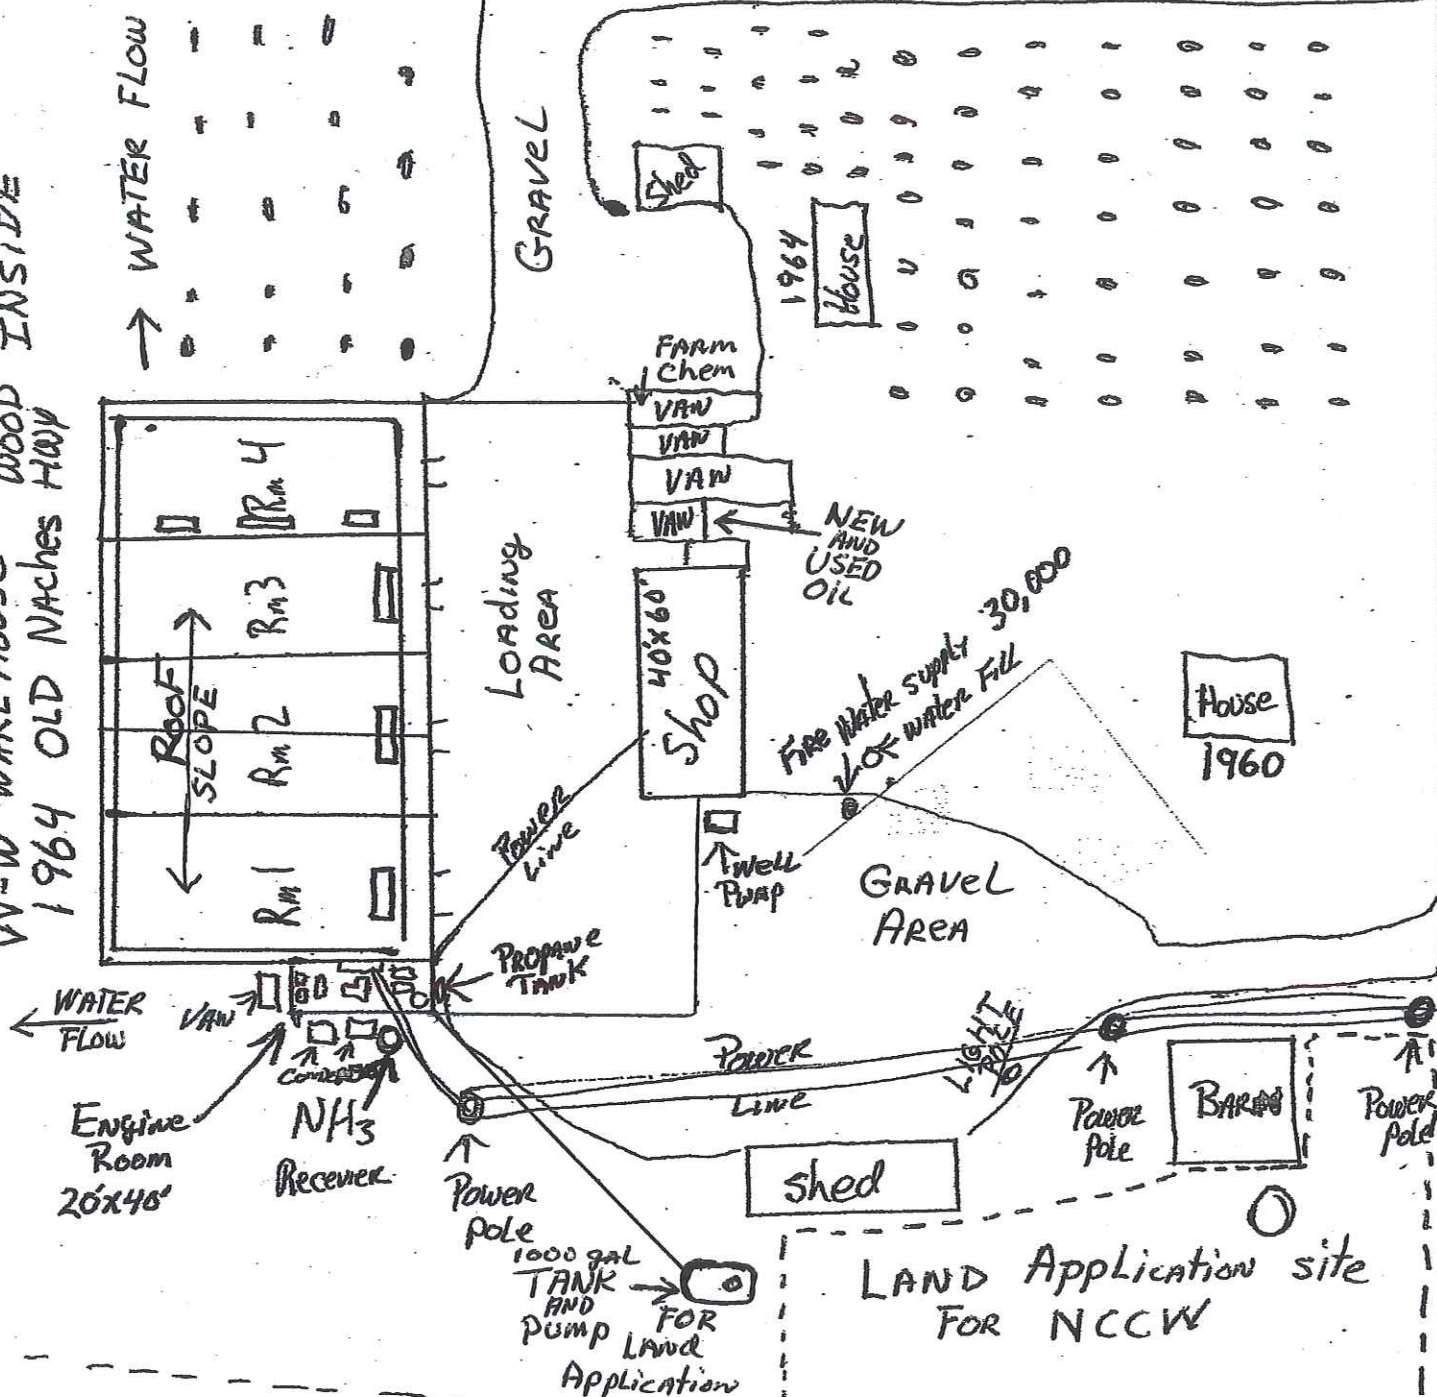 WOOD INSIDE
1964 OLD NAches HWY
WATER FLOW
GRAVEL
Shed
1964
House
FARM
Chem
VAN
VAN
VAN
VAN
NEW
AND
USED
OIL
Rm 4
Rm 3
Rm 2
Rm 1
ROOF
SLOPE
Loading
AREA
40'x60'
Shop
Fire Water supply 30,000
OF WATER Fill
House
1960
POWER
Line
Well
Pump
GRAVEL
AREA
PROPANE
TANK
WATER
FLOW
VAN
Engine
Room
20'x40'
NH3
Receiver
Power
Pole
Power
Line
LIGHT
POLE
Power
Pole
BARN
Power
Pole
shed
1000 gAL
TANK
AND
Pump
FOR
LAND
Application
LAND Application site
FOR NCCW